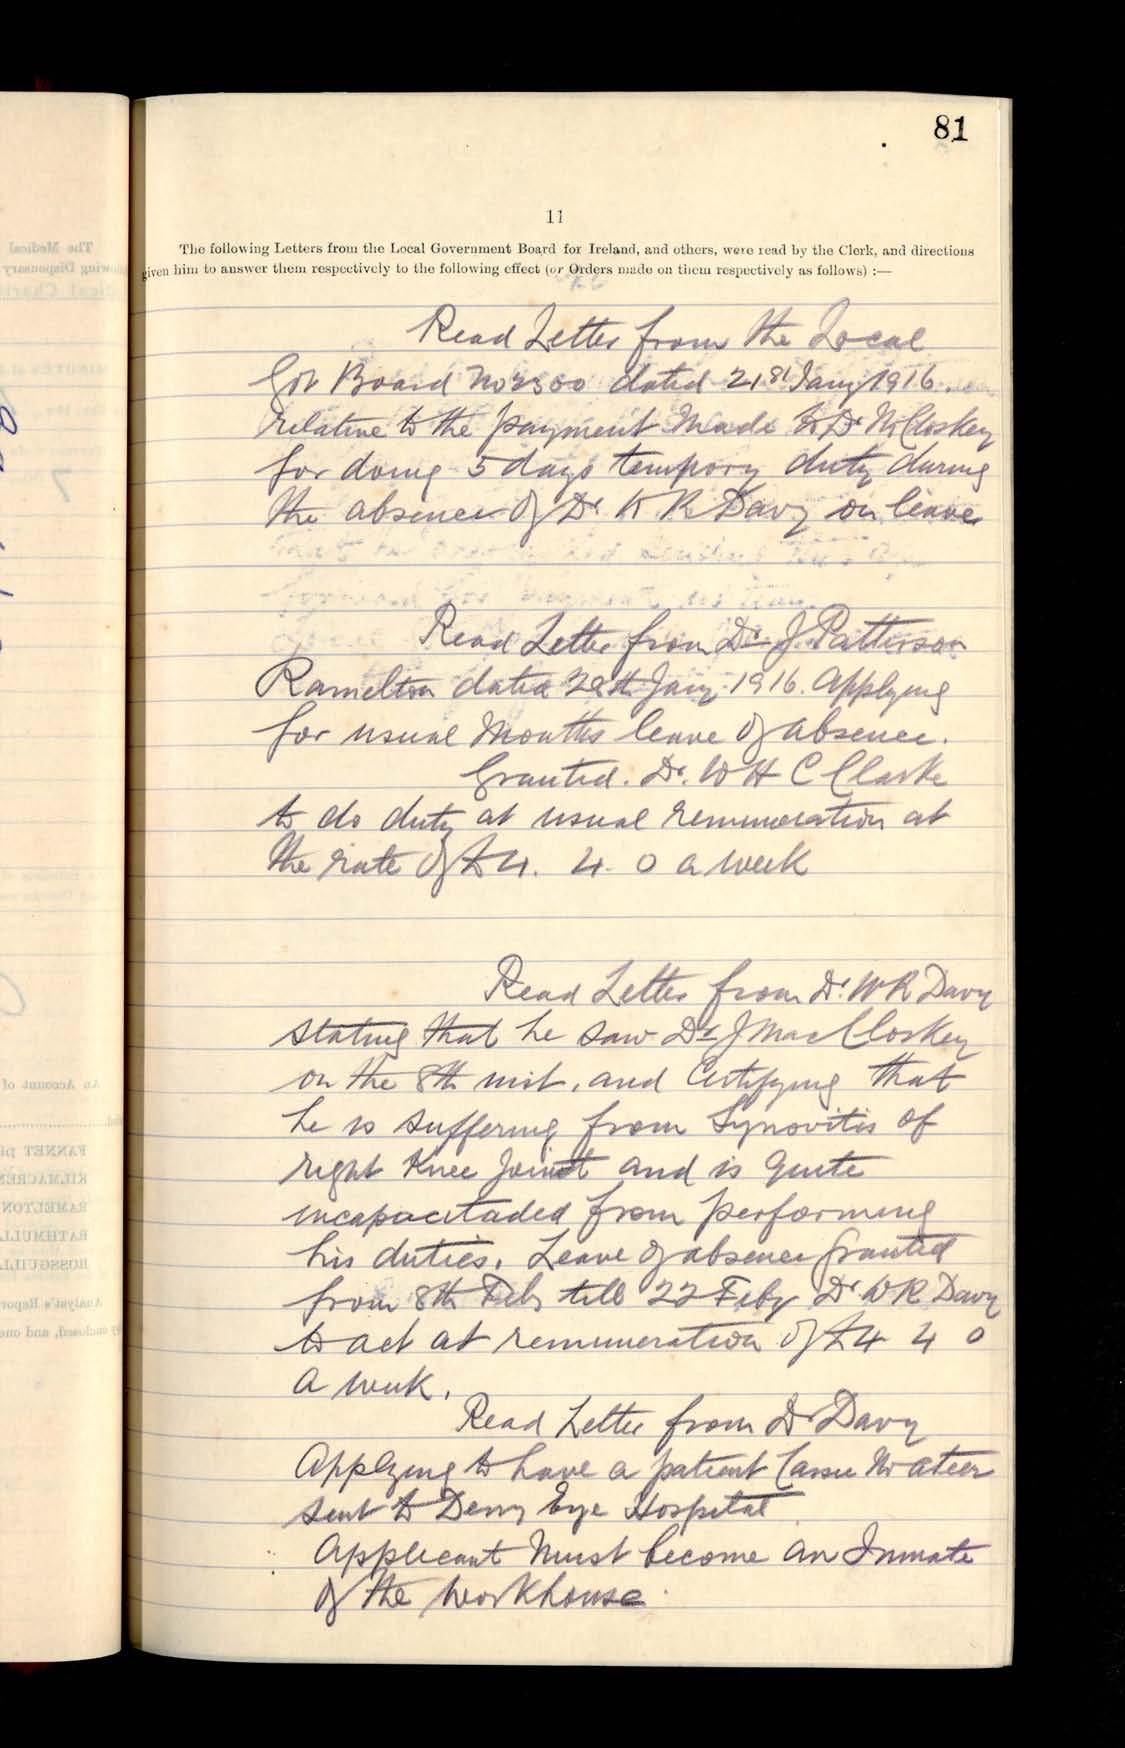 81
11
The following Letters from the Local Government Board for Ireland, and others, were read by the Clerk, and directions
given him to answer them respectively to the following effect (or Orders made on them respectively as follows) :—
Read Letter from the Local
Govt Board No 2300 dated 21st Jany 1916.
relative to the payment Made to Dr McCloskey
for doing 5 days tempory duty during
the absence of Dr W R Davy on leave
Read Letter from Dr J Patterson
Ramelton dated 28th Jany 1916. Applying
for usual Months leave of absence.
Granted. Dr. W H C Clarke
to do duty at usual remuneration at
the rate of £4. 4. 0 a week
Read Letter from Dr W R Davy
stating that he saw Dr J MacCloskey
on the 8th inst, and Certifying that
he is suffering from Synovitis of
right Knee Joint and is quite
incapacitaded from performing
his duties. Leave of absence Granted
from 8th Feby till 22 Feby Dr W R Davy
to act at remuneration of £4 4 0
a week.
Read Letter from Dr Davy
Applying to have a patient Cassie McAteer
sent to Derry Eye Hospital
Applicant Must become an Inmate
of the Workhouse
The Medical
Dispensary
An Account of
FANNET
KILMACREN
RAMELTON
RATHMULL
ROSSGUILL
Analyst's Report
enclosed, and one